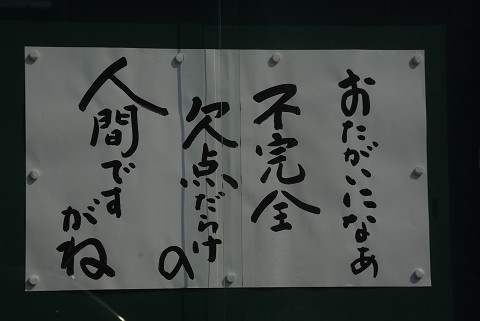 おたがいになあ
不完全
欠点だらけの
人間です
がね